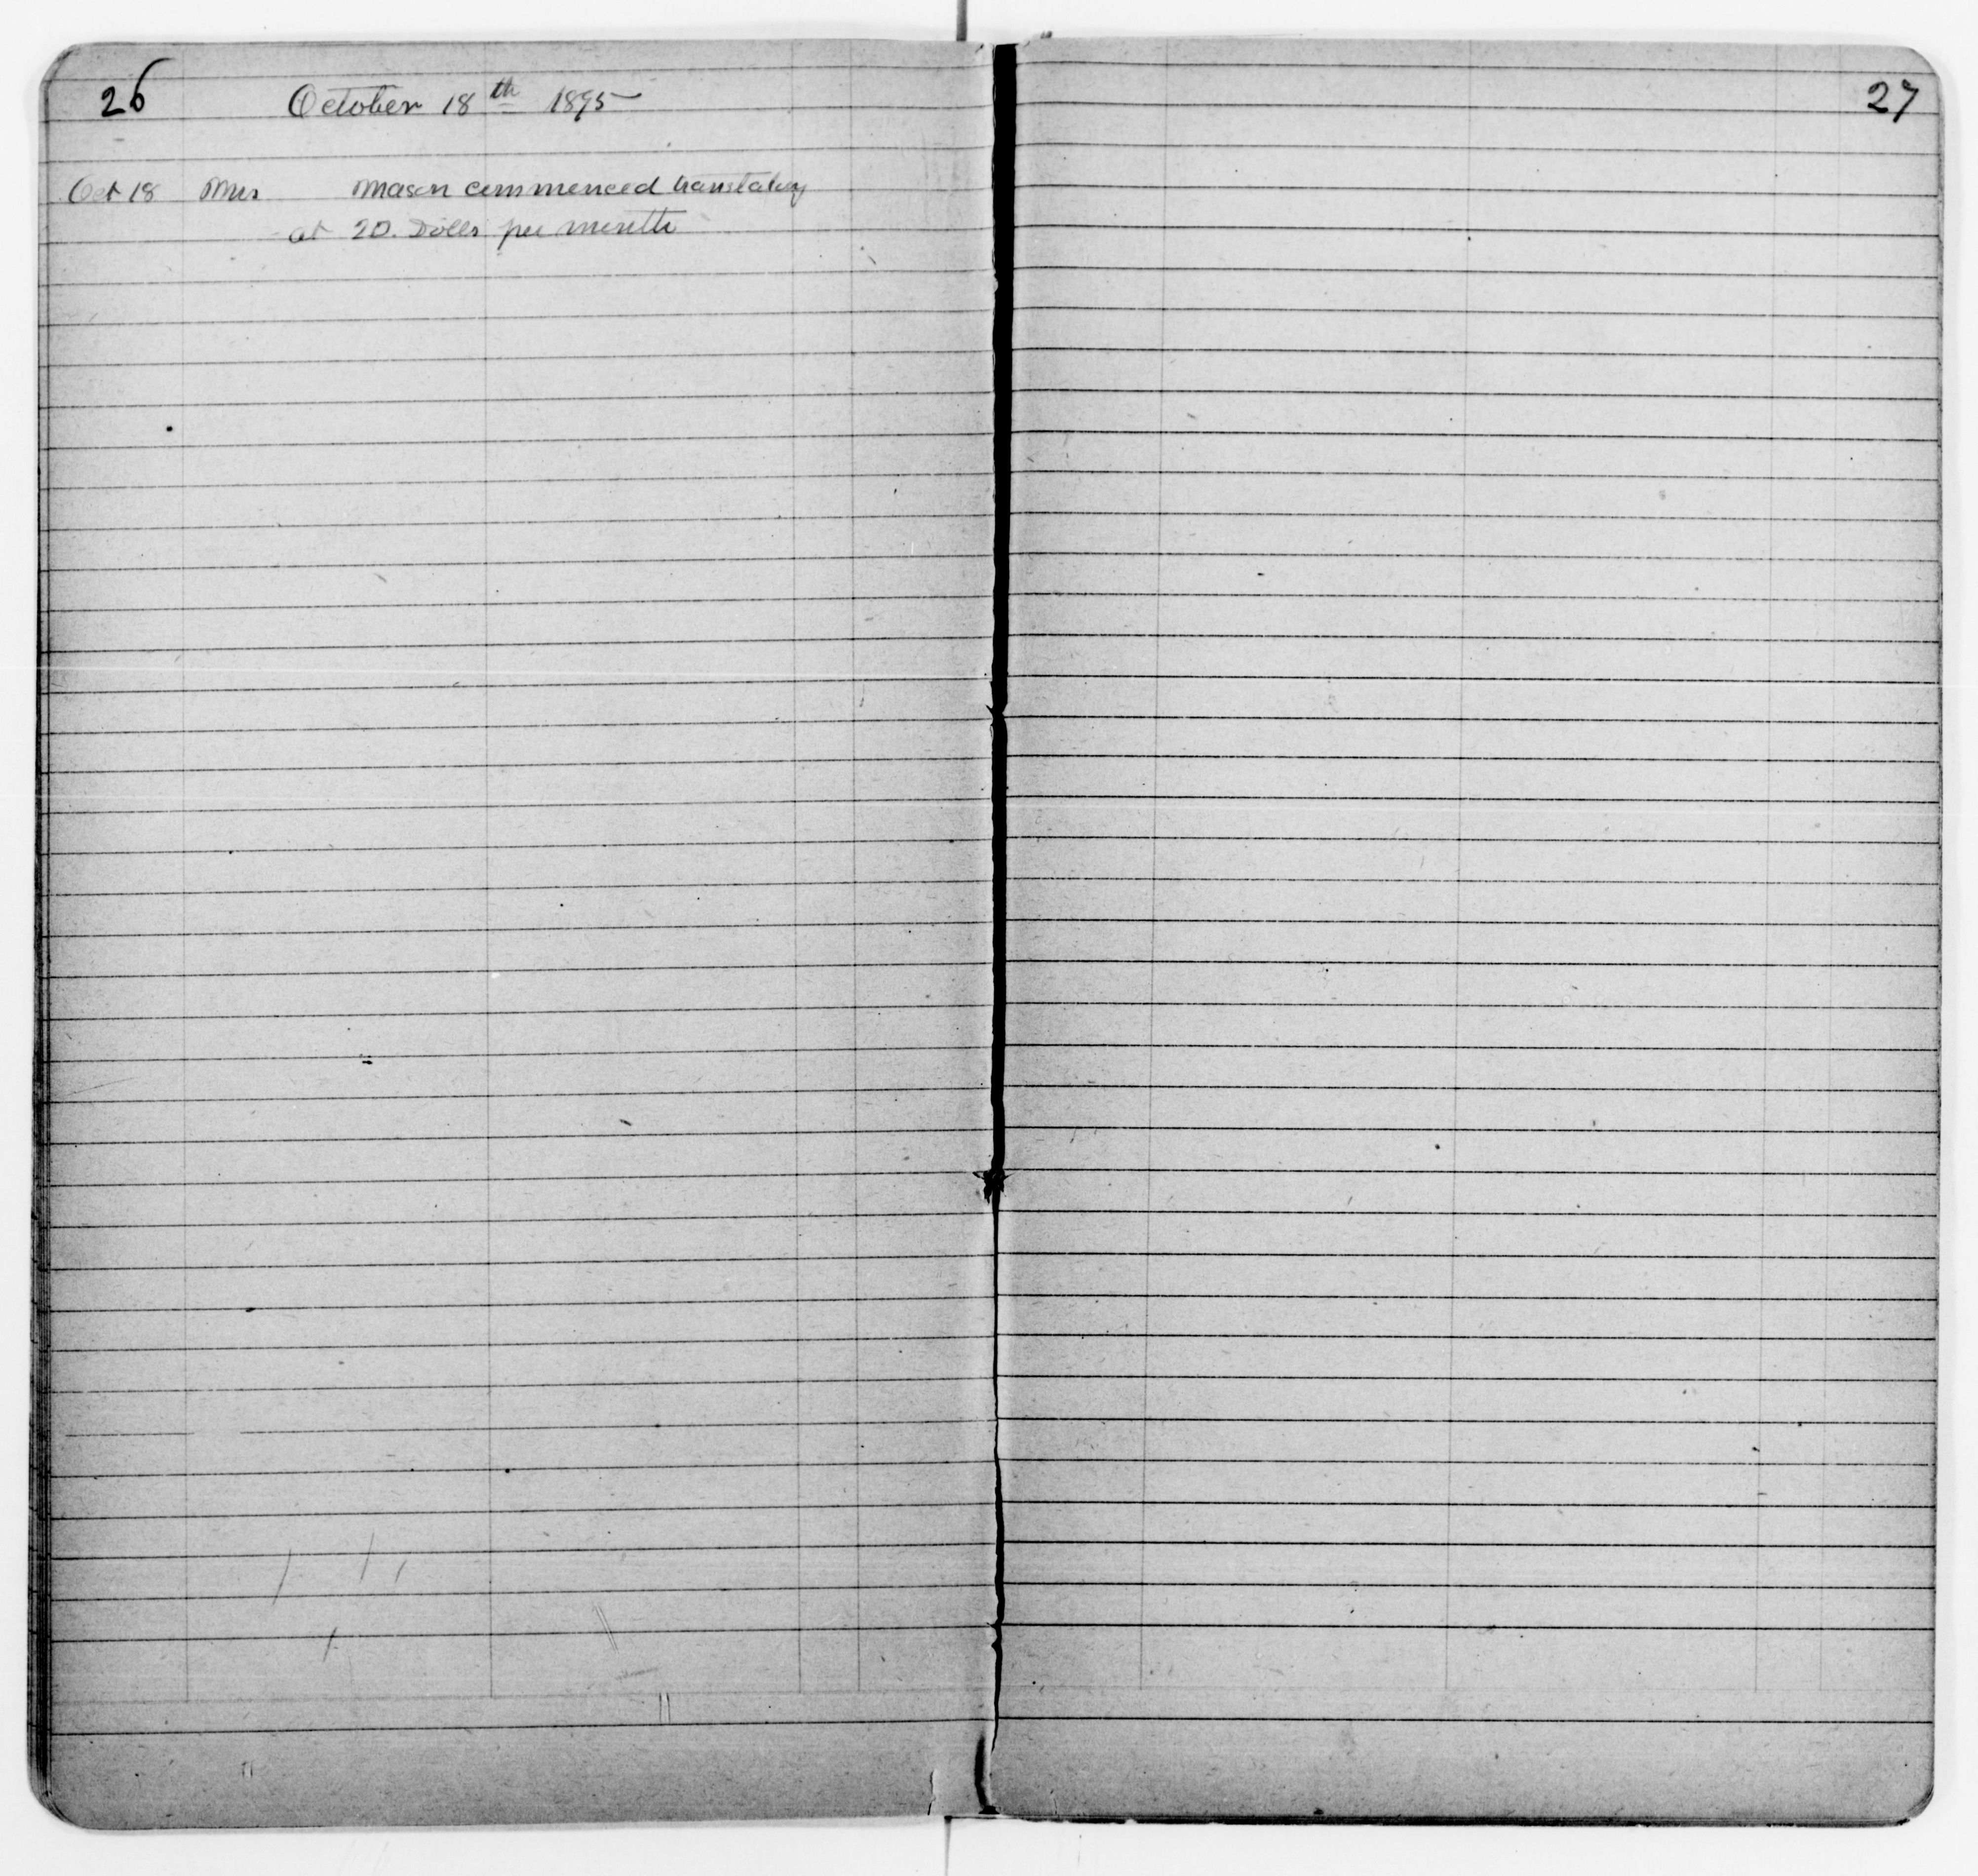 26 October 18th 1895
Oct 18 Mrs Mason commenced translating
at 20. Dolls per month
27